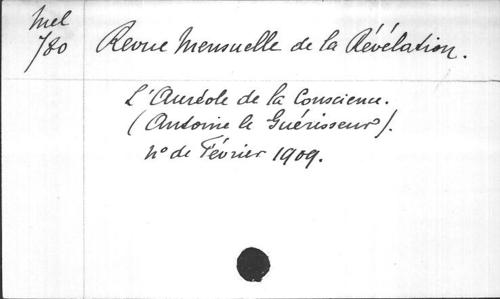 Mel
780
Revue Mensuelle de la Révélation.
L'Auréole de la Conscience.
(Antoine le Guérisseur).
n° de Février 1909.